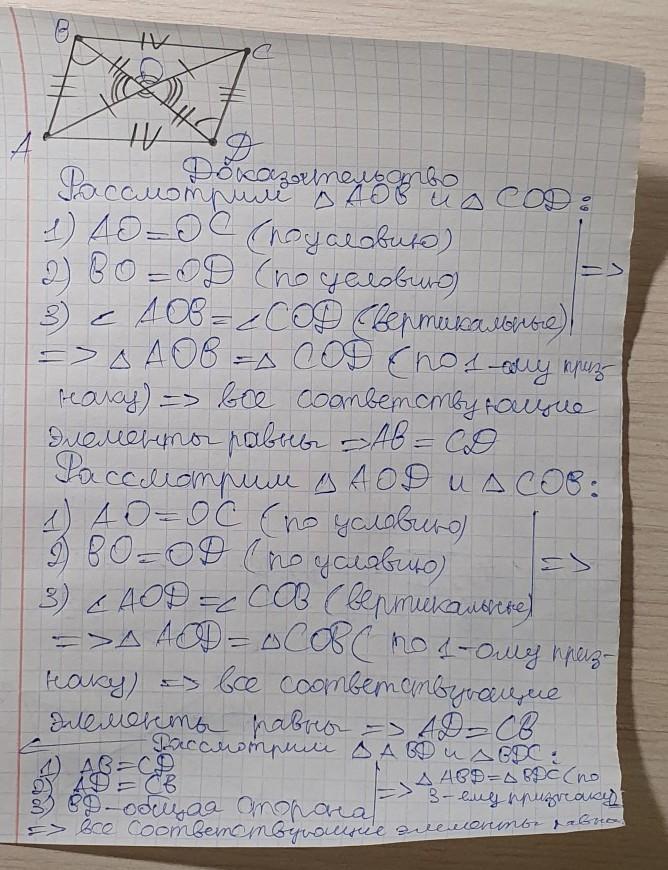 B IV C
O
A IV D
Доказательство
Рассмотрим △ AOB и △ COD:
1) AO=OC (по условию)
2) BO=OD (по условию) =>
3) ∠ AOB=∠COD (вертикальные)
=> △ AOB = △ COD (по 1-ому приз-
наку) => все соответствующие
элементы равны =>AB=CD
Рассмотрим △ AOD и △ COB:
1) AO=OC (по условию)
2) BO=OD (по условию) =>
3) ∠AOD=∠ COB (вертикальные)
=>△ AOD = △COB( по 1-ому приз-
наку) => все соответствующие
элементы равны => AD=CB
Рассмотрим △ ABD и △BDC:
1) AB=CD
2) AD=CB => △ ABD=△ BDC (по
3) BD-общая сторона 3-ему признаку)
=> все соответствующие элементы равны